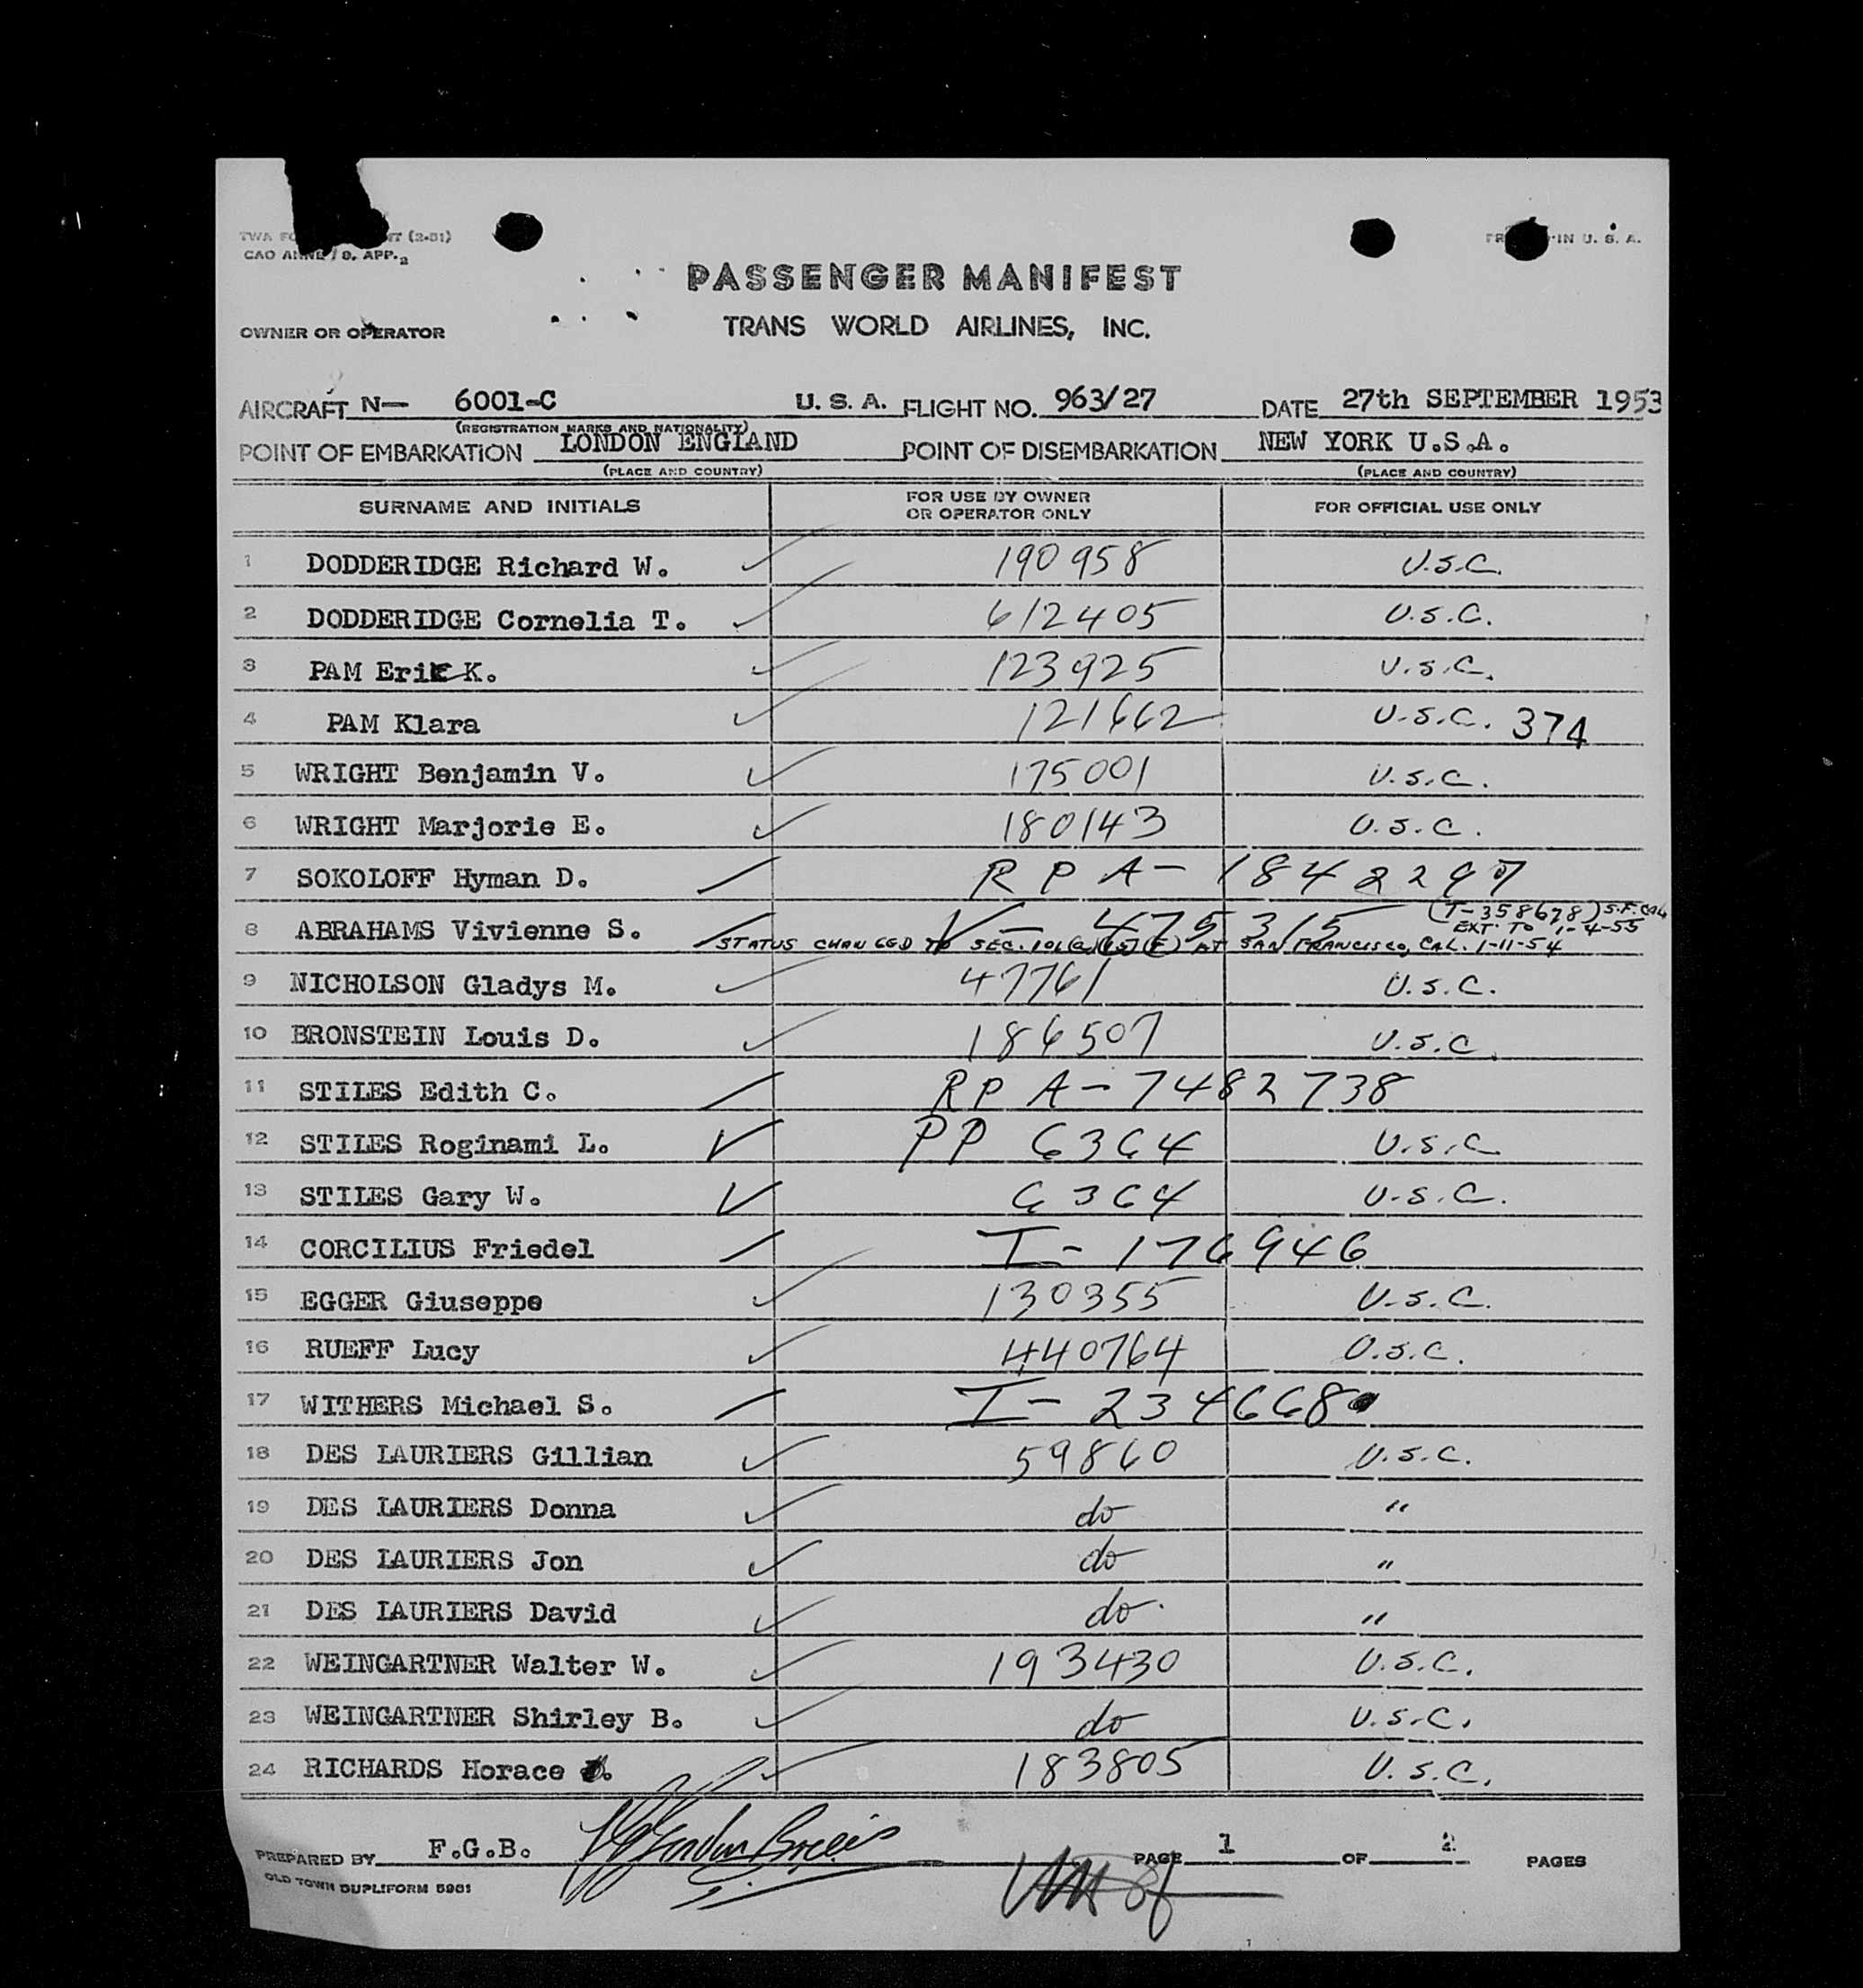 (2-51)
CAO ANNE / 9. APP. 2
IN U. S. A.
PASSENGER MANIFEST
OWNER OR OPERATOR TRANS WORLD AIRLINES, INC.
AIRCRAFT N— 6001-C U. S. A. FLIGHT NO. 963/27 DATE 27th SEPTEMBER 1953
(REGISTRATION MARKS AND NATIONALITY)
POINT OF EMBARKATION LONDON ENGLAND POINT OF DISEMBARKATION NEW YORK U.S.A.
(PLACE AND COUNTRY) (PLACE AND COUNTRY)
SURNAME AND INITIALS FOR USE BY OWNER OR OPERATOR ONLY FOR OFFICIAL USE ONLY
1 DODDERIDGE Richard W. 190958 U.S.C.
2 DODDERIDGE Cornelia T. 612405 U.S.C.
3 PAM Eric K. 123925 U.S.C.
4 PAM Klara 121662 U.S.C. 374
5 WRIGHT Benjamin V. 175001 U.S.C.
6 WRIGHT Marjorie E. 180143 U.S.C.
7 SOKOLOFF Hyman D. R P A- 1842297
8 ABRAHAMS Vivienne S. V - 475315 (T-358678) S.F. CAL
EXT. TO 1-4-55
STATUS CHANGED TO SEC. 101(a)(15)(F) AT SAN FRANCISCO, CAL. 1-11-54
9 NICHOLSON Gladys M. 47761 U.S.C.
10 BRONSTEIN Louis D. 186507 U.S.C.
11 STILES Edith C. RP A- 7482738
12 STILES Roginami L. PP 6364 U.S.C
13 STILES Gary W. 6364 U.S.C.
14 CORCILIUS Friedel I- 176946
15 EGGER Giuseppe 130355 U.S.C.
16 RUEFF Lucy 440764 U.S.C.
17 WITHERS Michael S. I- 234668
18 DES LAURIERS Gillian 59860 U.S.C.
19 DES LAURIERS Donna do "
20 DES LAURIERS Jon do "
21 DES LAURIERS David do. "
22 WEINGARTNER Walter W. 193430 U.S.C.
23 WEINGARTNER Shirley B. do U.S.C.
24 RICHARDS Horace 183805 U.S.C.
PREPARED BY F.G.B. PAGE 1 OF 2 PAGES
OLD TOWN DUPLIFORM 5951